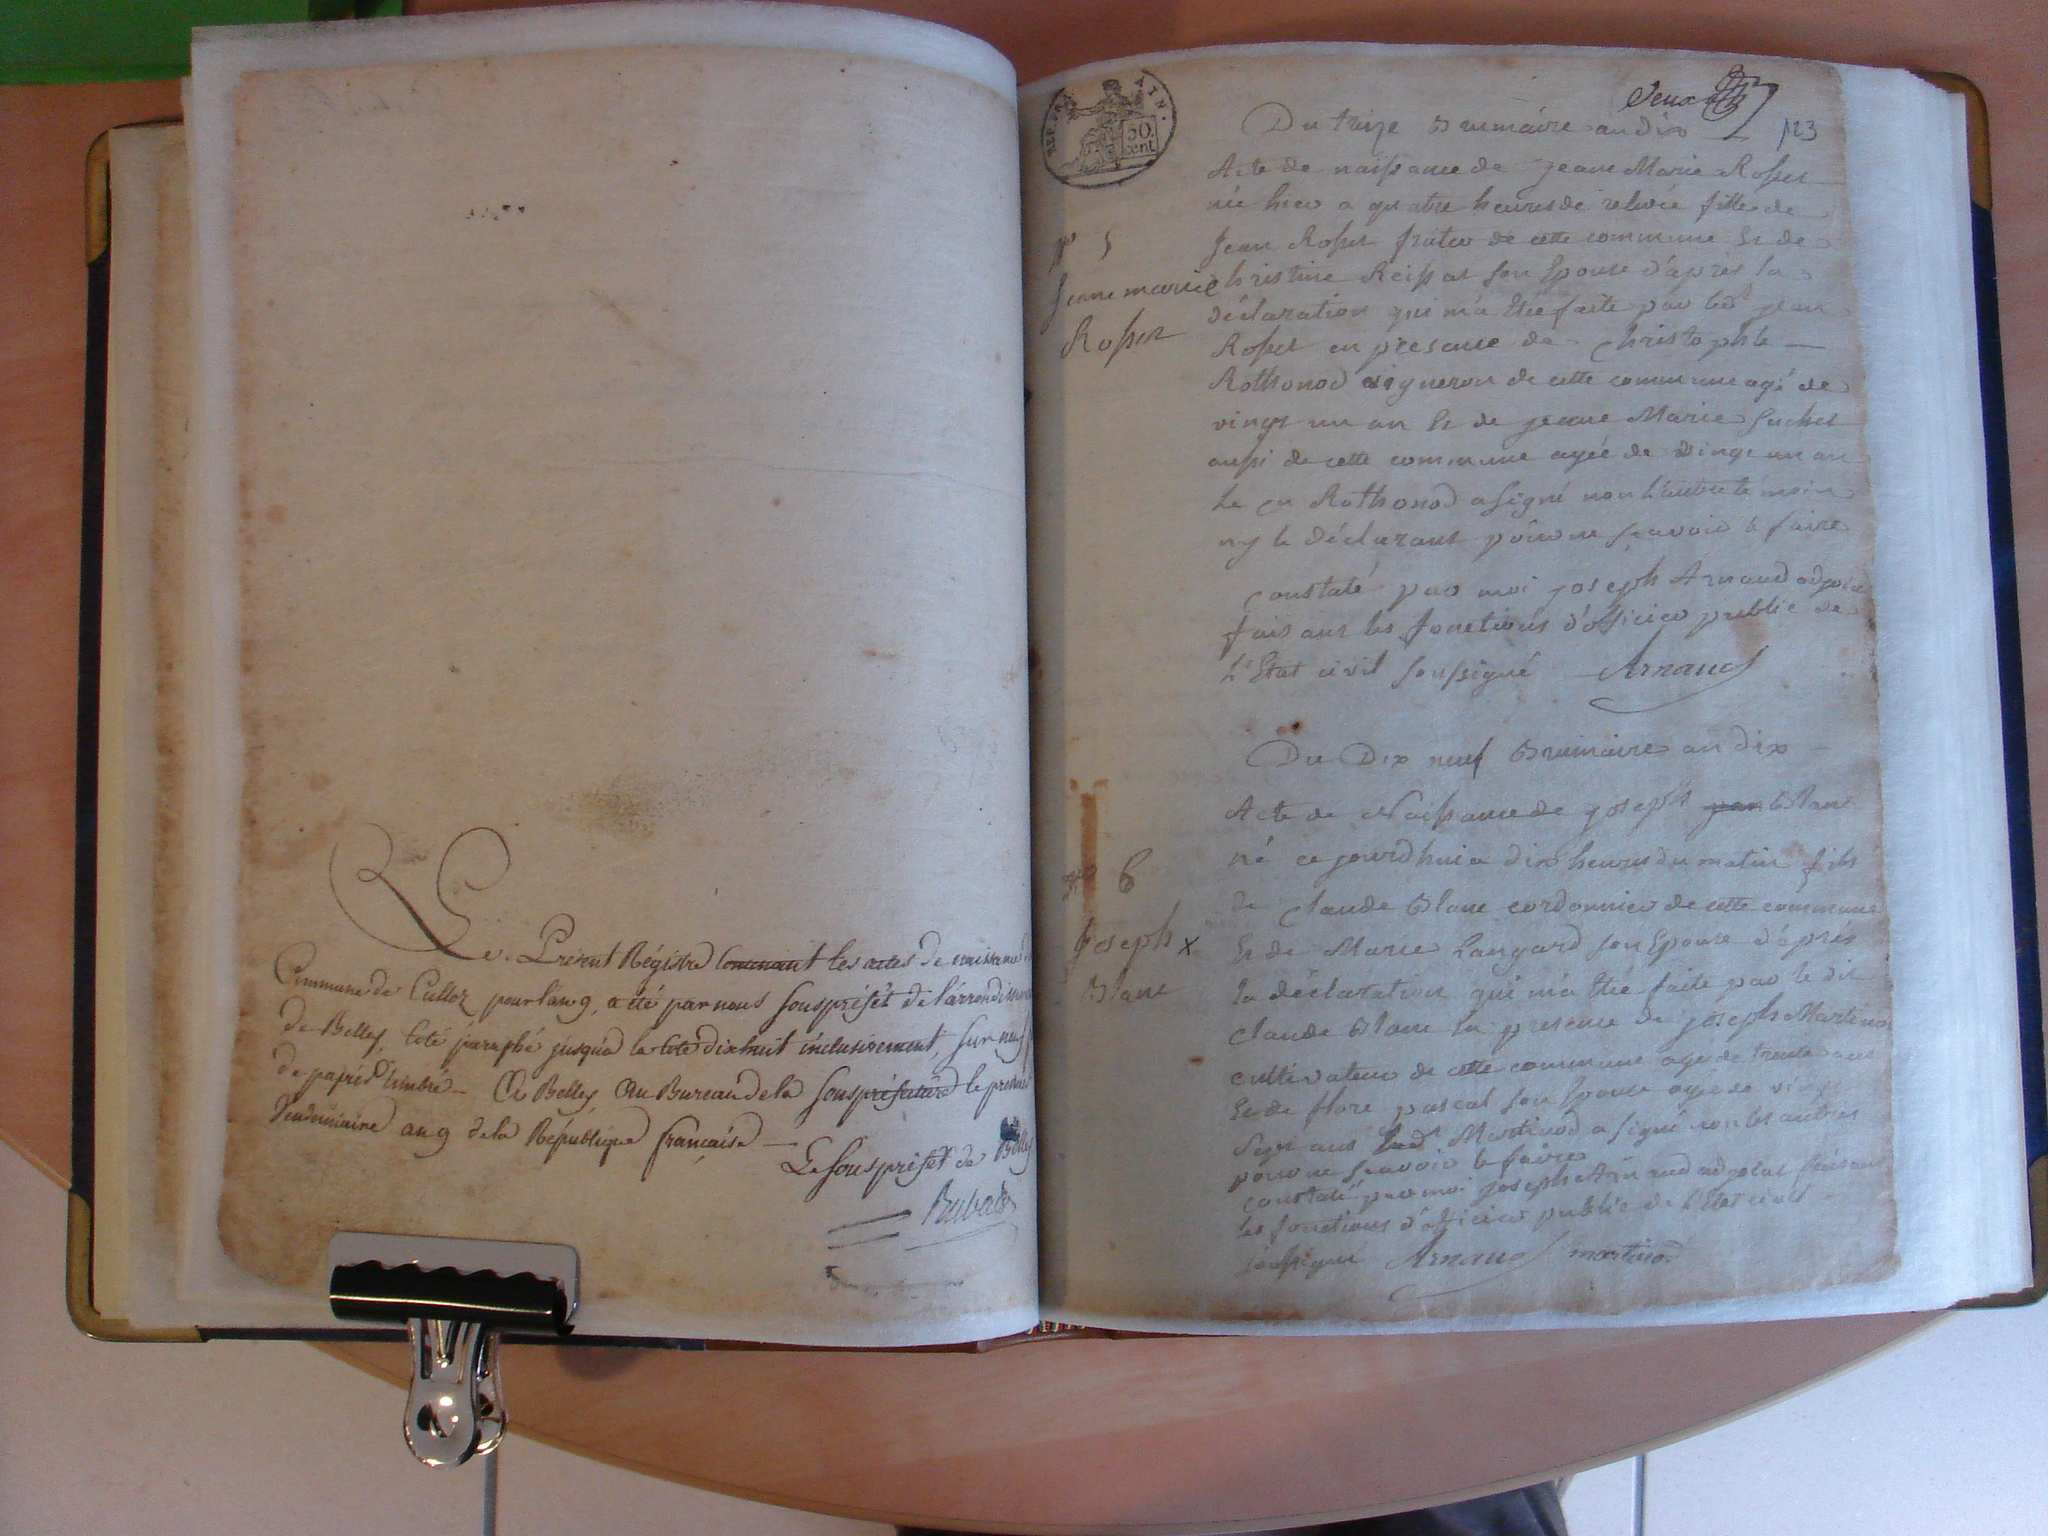 Le Présent Régistre Contenant les actes de naissance
Commune de Culloz pour l'an 9, a été par nous Sousprefet de l'arrondissement
de Belley, Coté paraphé jusqu'a la Cote dixhuit inclusivement, Sur neuf
de papier timbré — A Belley Au Bureau de la Sousprefecture le premier
Vendemiaire an 9 de la République française —
Le Sousprefet de Belley
REP. FRA. AIN.
50. cent
123
Du treize Brumaire an dix
Acte de naissance de jeane Marie Rosset
née hier a quatre heures de relevée fille de
Jean Rosset frater de cette commune Et de
N° 5
Jeane marie
Rosset
christine Reissat son Epouse d'après la
déclaration qui m'a Etée faite par led jean
Rosset en presence de christophle
Rothonod vigneron de cette commune agé de
vingt un an Et de jeane Marie Suchet
aussi de cette commune agée de vingt un an
Le cn Rothonod a signé non L'autre temoin
ny le déclarant pour ne scavoir le faire
constaté par moi joseph Arnaud adjoint
faisant les fonctions d'officier public de
L'Etat civil soussigné Arnaud
Du Dix neuf Brumaire an dix
Acte de Naissance de joseph Blanc
né ce jourdhui a dix heures du matin fils
N° 6
Joseph x
Blanc
de claude Blanc cordonnier de cette commune
Et de Marie Langard son Epouse d'après
la déclaration qui m'a Etée faite par le dit
claude Blanc en presence de joseph Martinod
cultivateur de cette commune agé de trente ans
Et de flore pascal son Epouse agée de vingt
Sept ans led Martinod a signé non les autres
pour ne scavoir le faire
constaté par moi joseph Arnaud adjoint faisant
les fonctions d'officier public de L'Etat civil
soussigné Arnaud martinod